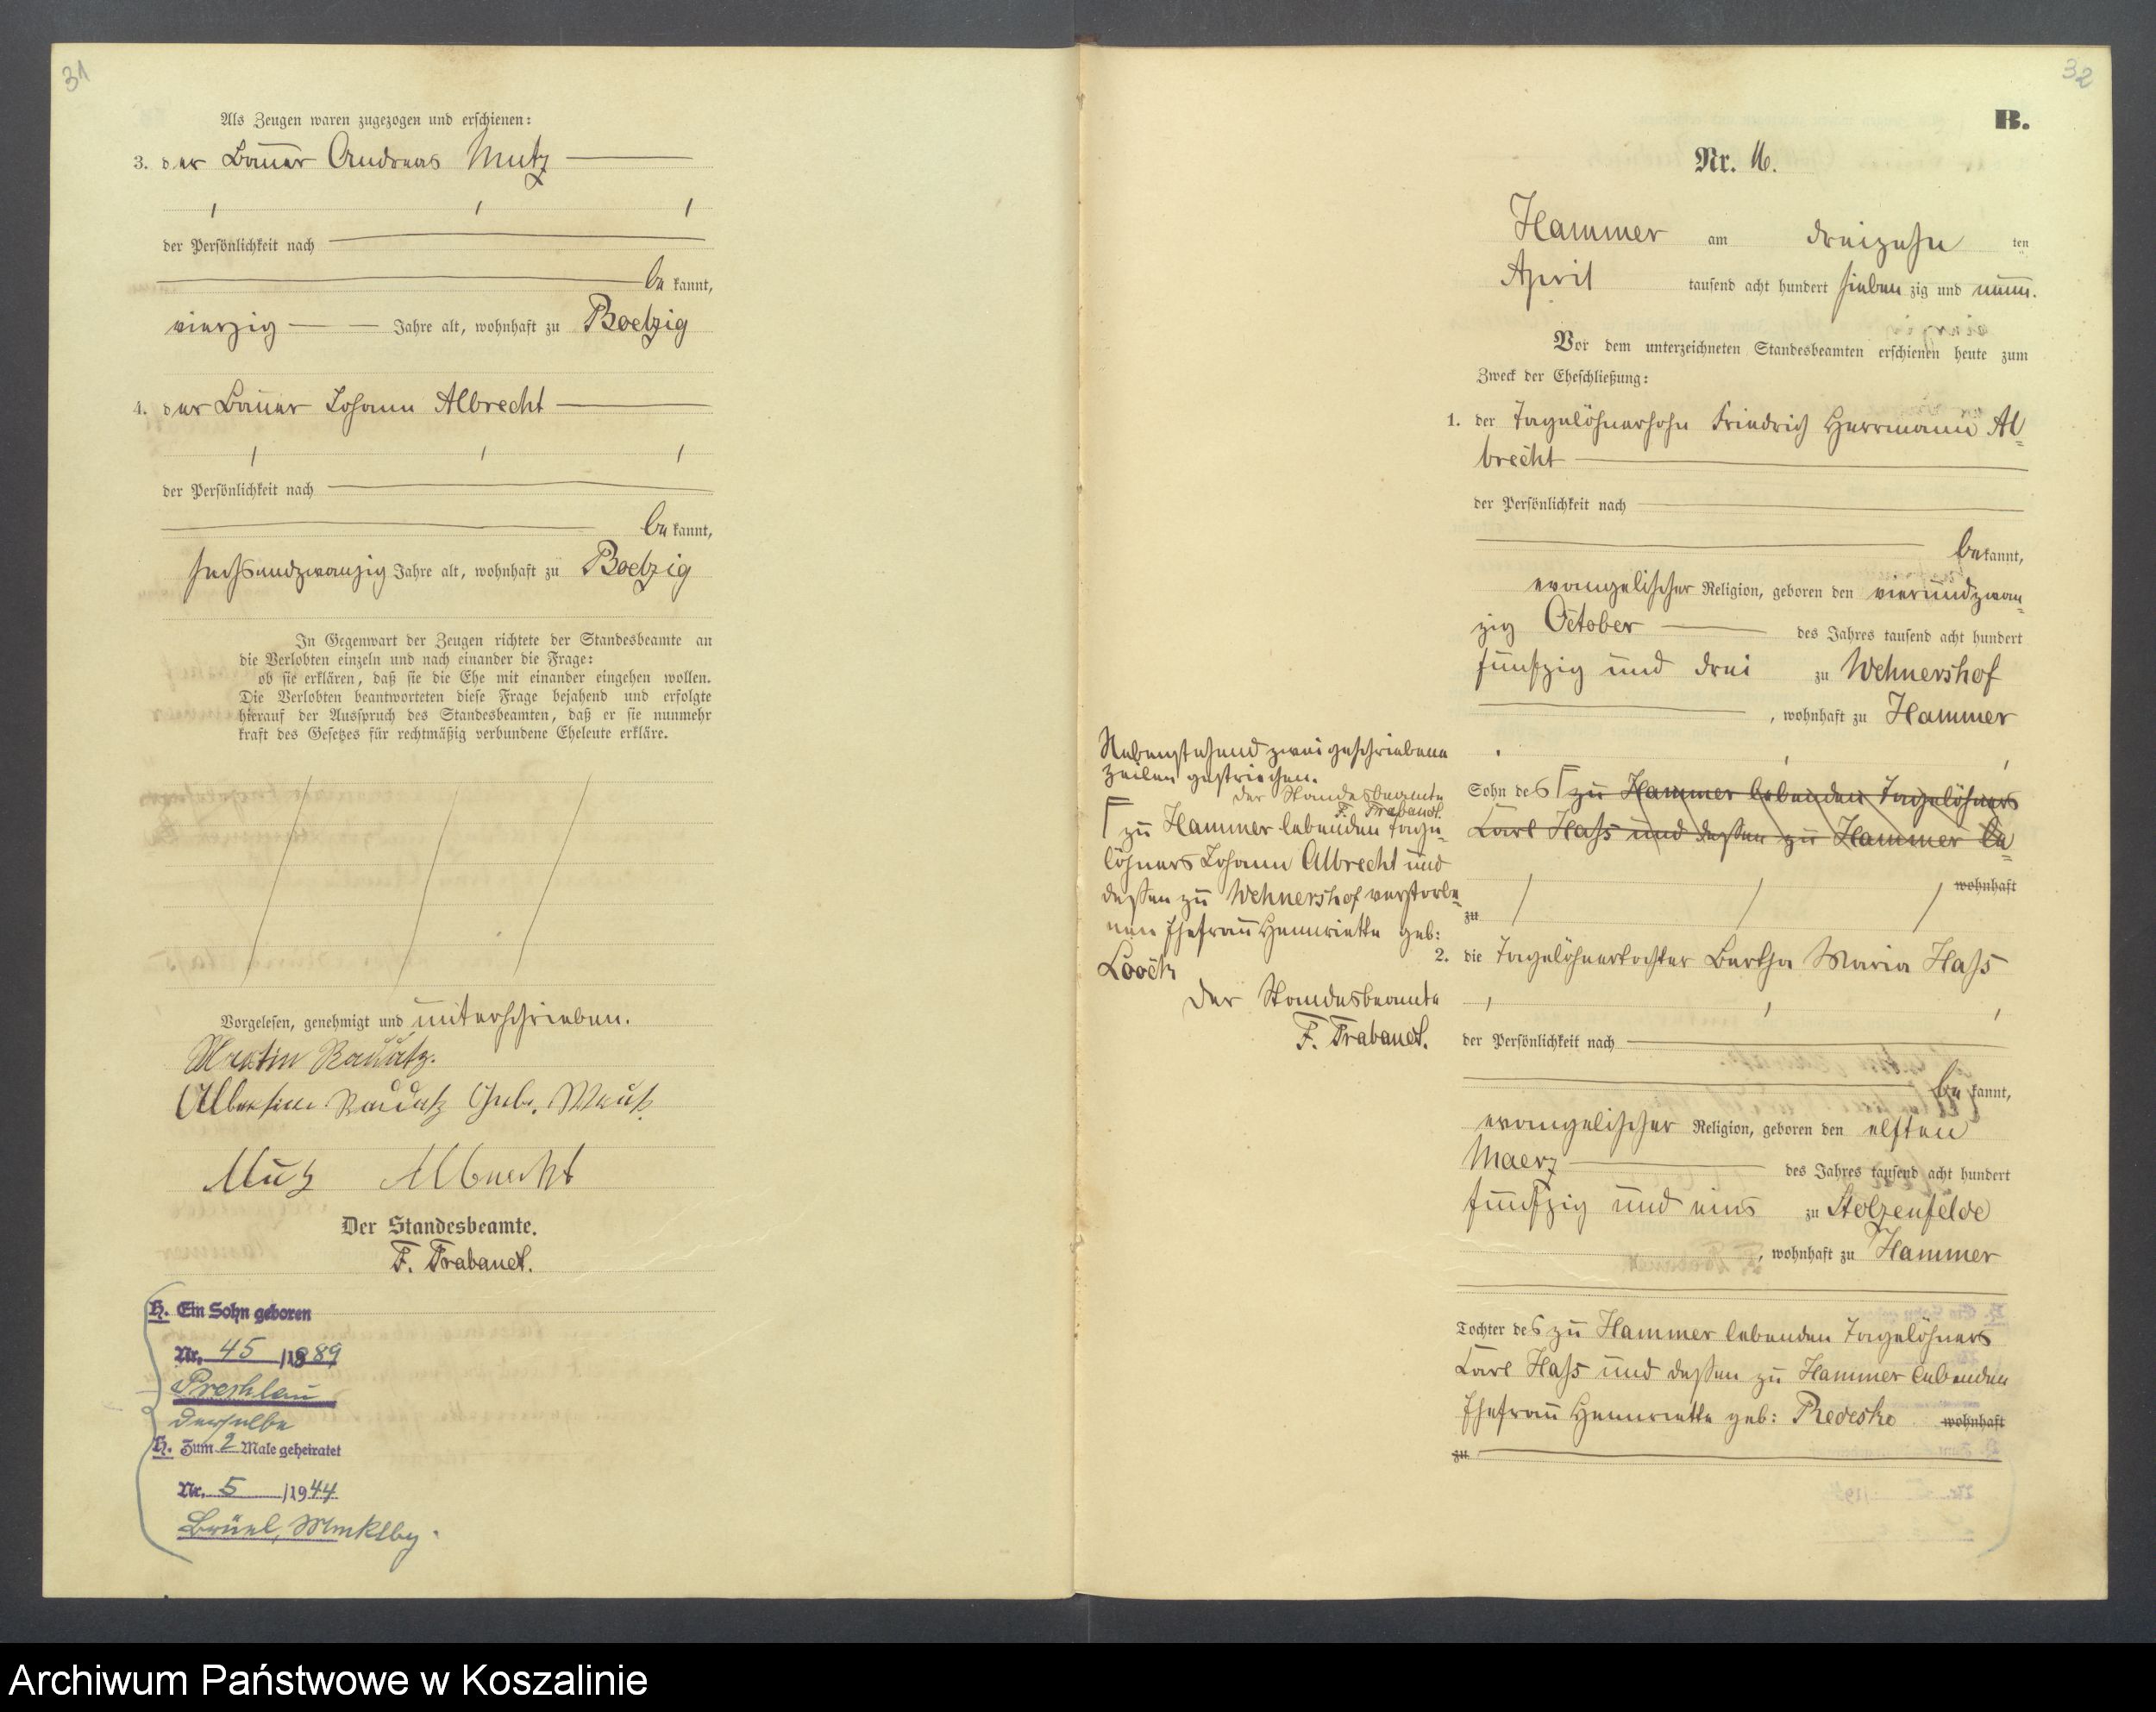 31
Als Zeugen waren zugezogen und erschienen:
3. der Bauer Andreas Mutz
der Persönlichkeit nach
bekannt,
vierzig Jahre alt, wohnhaft zu Boetzig
4. der Bauer Johann Albrecht
der Persönlichkeit nach
bekannt,
sechsundzwanzig Jahre alt, wohnhaft zu Boetzig
In Gegenwart der Zeugen richtete der Standesbeamte an
die Verlobten einzeln und nach einander die Frage:
ob sie erklären, daß sie die Ehe mit einander eingehen wollen.
Die Verlobten beantworteten diese Frage bejahend und erfolgte
hierauf der Ausspruch des Standesbeamten, daß er sie nunmehr
kraft des Gesetzes für rechtmäßig verbundene Eheleute erkläre.
Vorgelesen, genehmigt und unterschrieben.
Martin Radatz.
Albertine Radatz Geb. Mutz
Mutz Albrecht
Der Standesbeamte.
F. Trabandt.
H. Ein Sohn geboren
Nr. 45 /1889
derselbe
H. Zum 2 Male geheiratet
Nr. 5 /1944
Brüel, Mmklbg.
32
B.
Nr. 16.
Hammer am dreizehnten
April tausend acht hundert siebenzig und neun.
Vor dem unterzeichneten Standesbeamten erschienen heute zum
Zweck der Eheschließung:
1. der Tagelöhnersohn Friedrich Herrmann Al=
brecht
der Persönlichkeit nach
bekannt,
evangelischer Religion, geboren den vierundzwan=
zig October des Jahres tausend acht hundert
fünfzig und drei zu Wehnershof
, wohnhaft zu Hammer
Sohn des zu Hammer lebenden Tagelöhners
Carl Hass und dessen zu Hammer le=
wohnhaft
zu
Nebenstehend zwei geschriebene
Zeilen gestrichen.
der Standesbeamte
F. Trabandt.
zu Hammer lebenden Tage=
löhners Johann Albrecht und
dessen zu Wehnershof verstorbe=
nen Ehefrau Henriette geb:
Loock
Der Standesbeamte
F. Trabandt.
2. die Tagelöhnertochter Bertha Maria Hass
der Persönlichkeit nach
bekannt,
evangelischer Religion, geboren den elften
Maerz des Jahres tausend acht hundert
fünfzig und eins zu Stolzenfelde
, wohnhaft zu Hammer
Tochter des zu Hammer lebenden Tagelöhners
Carl Hass und dessen zu Hammer lebenden
Ehefrau Henriette geb: Redeske wohnhaft
zu
Archiwum Państwowe w Koszalinie